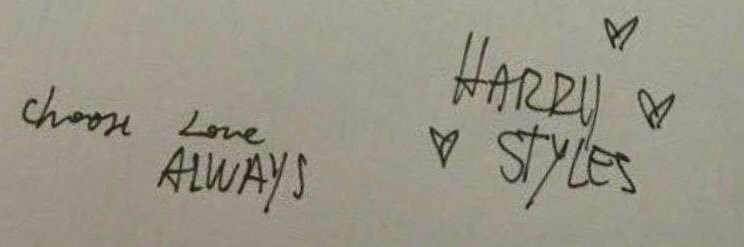 Choose Love
ALWAYS
HARRY
STYLES